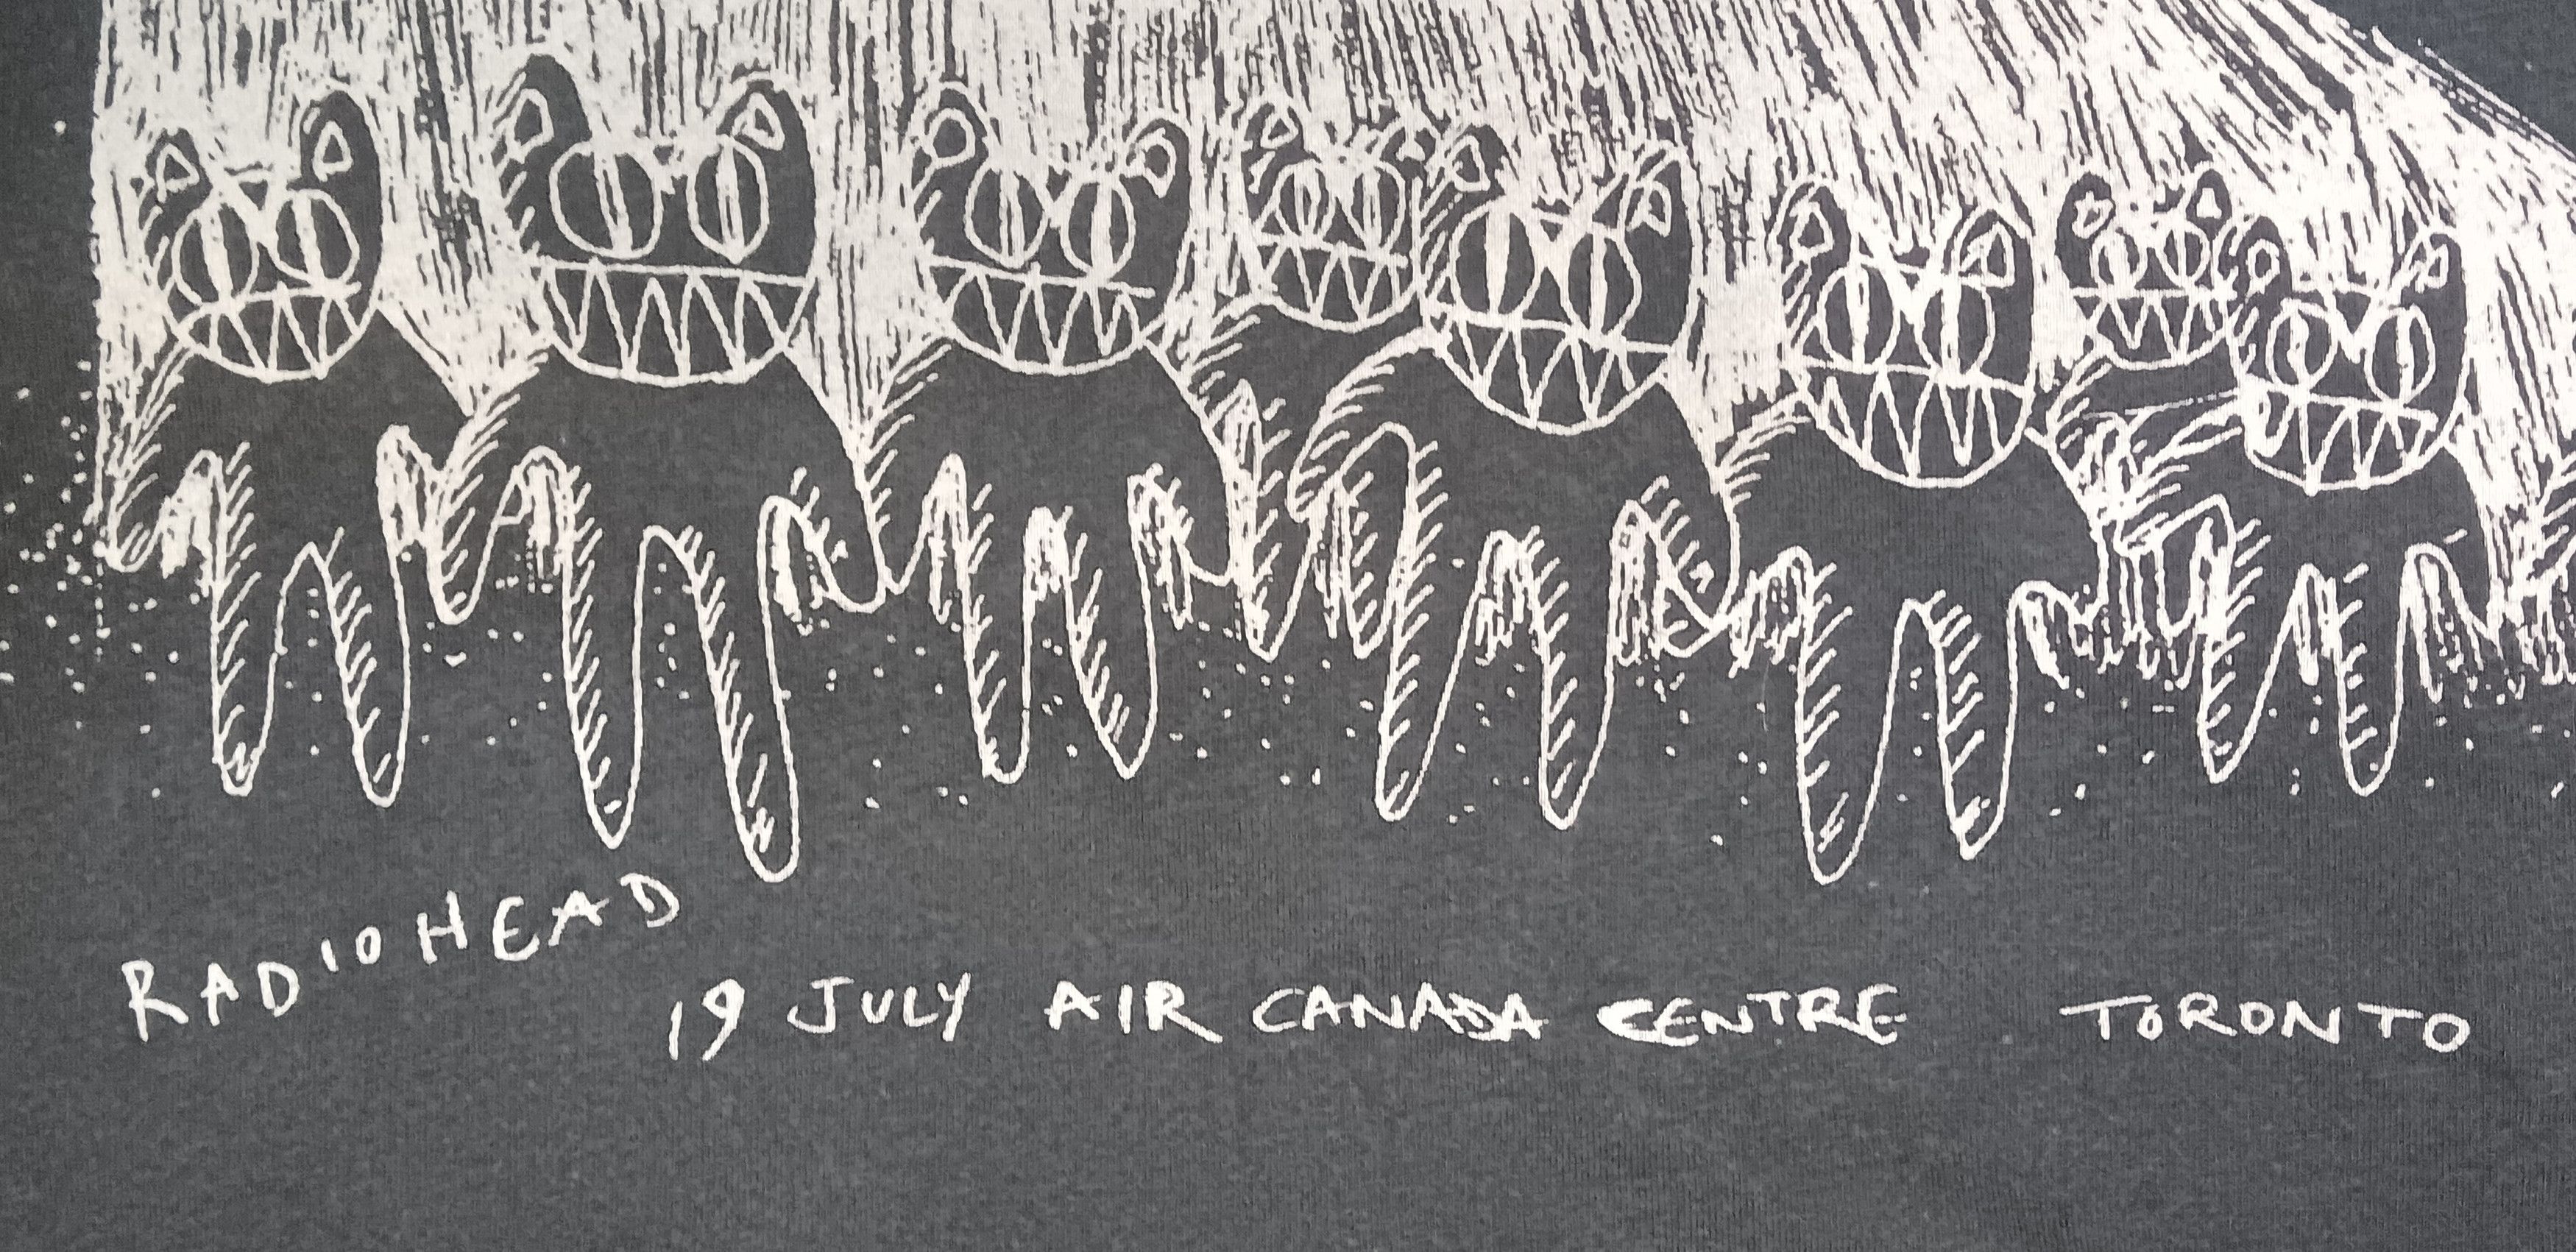 RADIOHEAD
19 JULY AIR CANADA CENTRE TORONTO